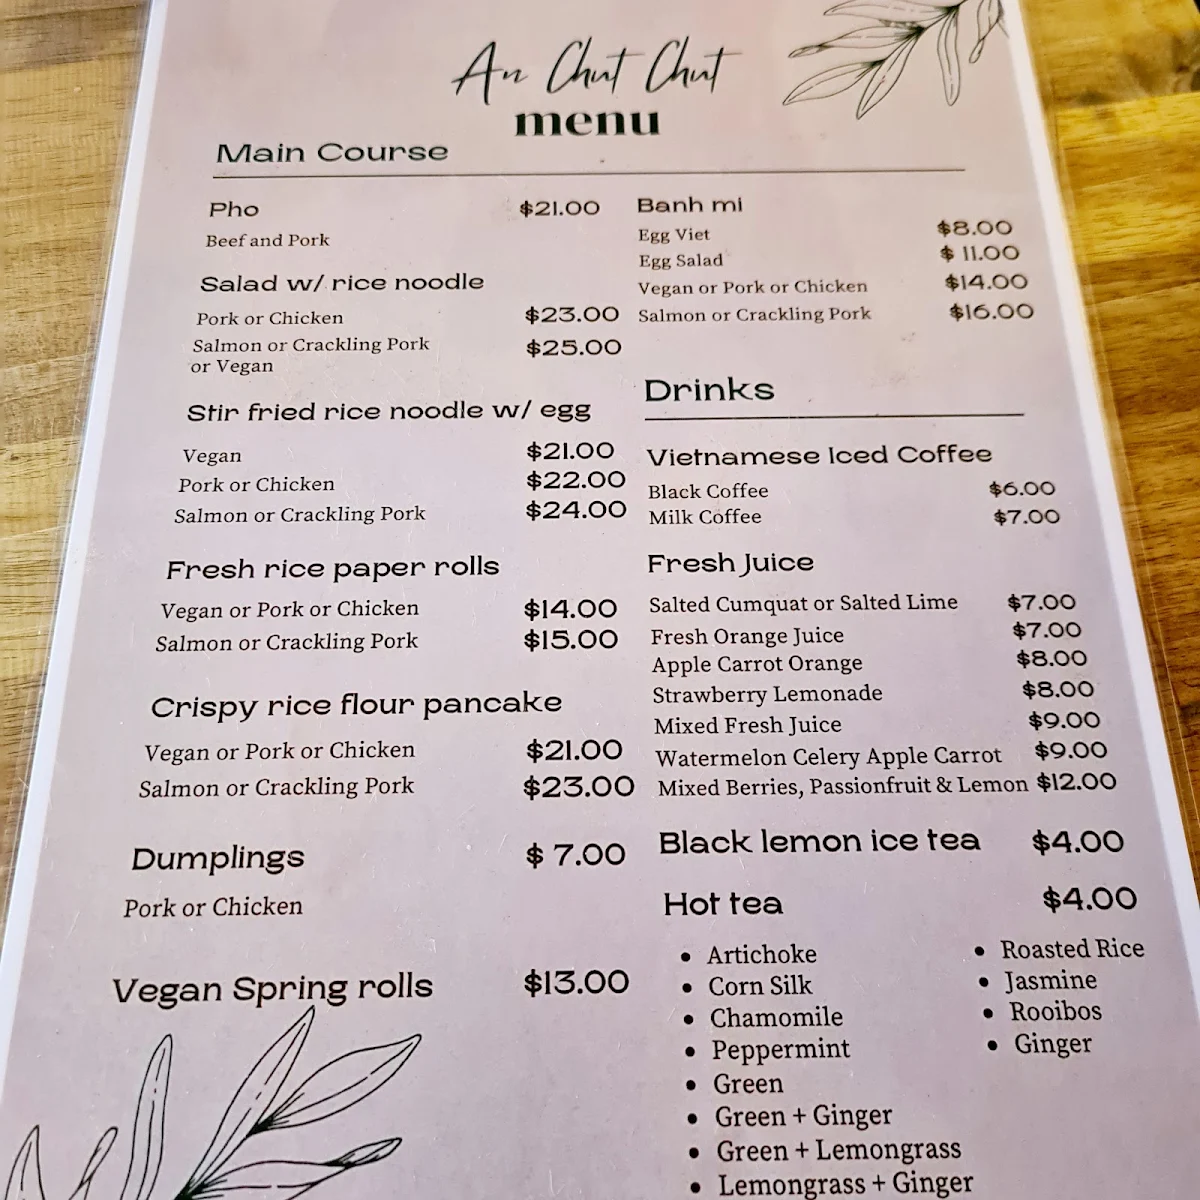 An Chut Chut
menu
Main Course
Pho $21.00
Beef and Pork
Salad w/ rice noodle
Pork or Chicken $23.00
Salmon or Crackling Pork $25.00
or Vegan
Stir fried rice noodle w/ egg
Vegan $21.00
Pork or Chicken $22.00
Salmon or Crackling Pork $24.00
Fresh rice paper rolls
Vegan or Pork or Chicken $14.00
Salmon or Crackling Pork $15.00
Crispy rice flour pancake
Vegan or Pork or Chicken $21.00
Salmon or Crackling Pork $23.00
Dumplings $ 7.00
Pork or Chicken
Vegan Spring rolls $13.00
Banh mi
Egg Viet $8.00
Egg Salad $ 11.00
Vegan or Pork or Chicken $14.00
Salmon or Crackling Pork $16.00
Drinks
Vietnamese Iced Coffee
Black Coffee $6.00
Milk Coffee $7.00
Fresh Juice
Salted Cumquat or Salted Lime $7.00
Fresh Orange Juice $7.00
Apple Carrot Orange $8.00
Strawberry Lemonade $8.00
Mixed Fresh Juice $9.00
Watermelon Celery Apple Carrot $9.00
Mixed Berries, Passionfruit & Lemon $12.00
Black lemon ice tea $4.00
Hot tea $4.00
• Artichoke
• Corn Silk
• Chamomile
• Peppermint
• Green
• Green + Ginger
• Green + Lemongrass
• Lemongrass + Ginger
• Roasted Rice
• Jasmine
• Rooibos
• Ginger